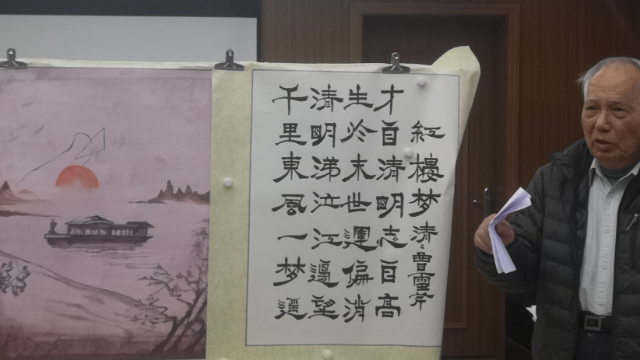 紅樓梦 清:曹雪芹
才自清明志自高
生於末世運偏消
清明涕泣江邊望
千里東風一梦遥